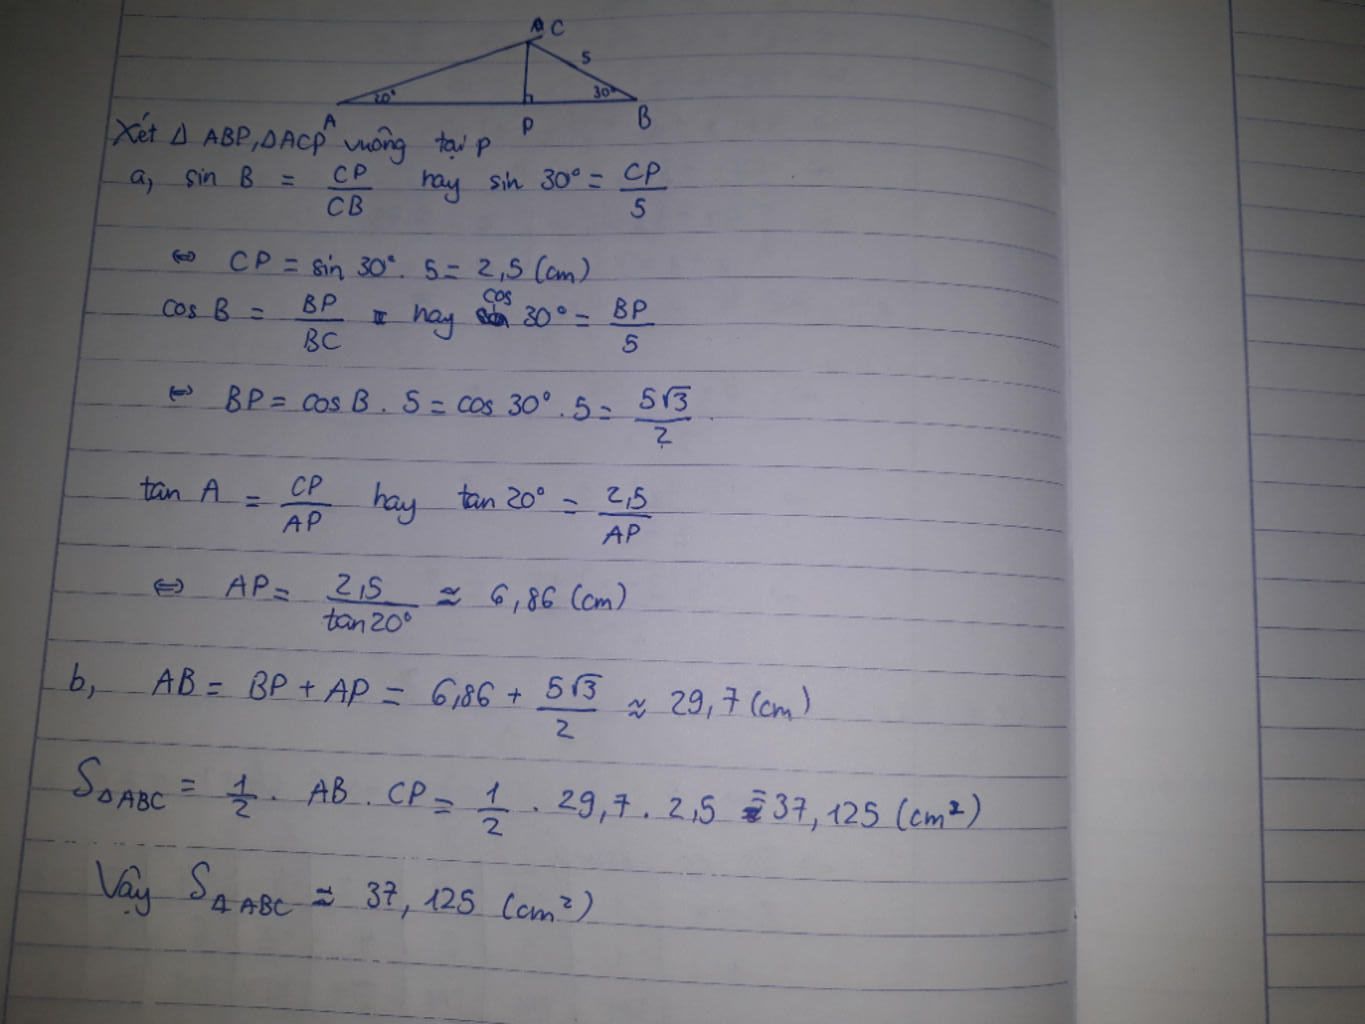 C
5
20°
30°
A
P
B
Xét Δ ABP, ΔACP vuông tại P
a, sin B = CP/CB hay sin 30° = CP/5
⇔ CP = sin 30° . 5 = 2,5 (cm)
cos B = BP/BC hay cos 30° = BP/5
⇔ BP = cos B . 5 = cos 30° . 5 = 5√3/2
tan A = CP/AP hay tan 20° = 2,5/AP
⇔ AP = 2,5/tan 20° ≈ 6,86 (cm)
b, AB = BP + AP = 6,86 + 5√3/2 ≈ 29,7 (cm)
SΔABC = 1/2 . AB . CP = 1/2 . 29,7 . 2,5 = 37,125 (cm²)
Vậy SΔABC ≈ 37,125 (cm²)